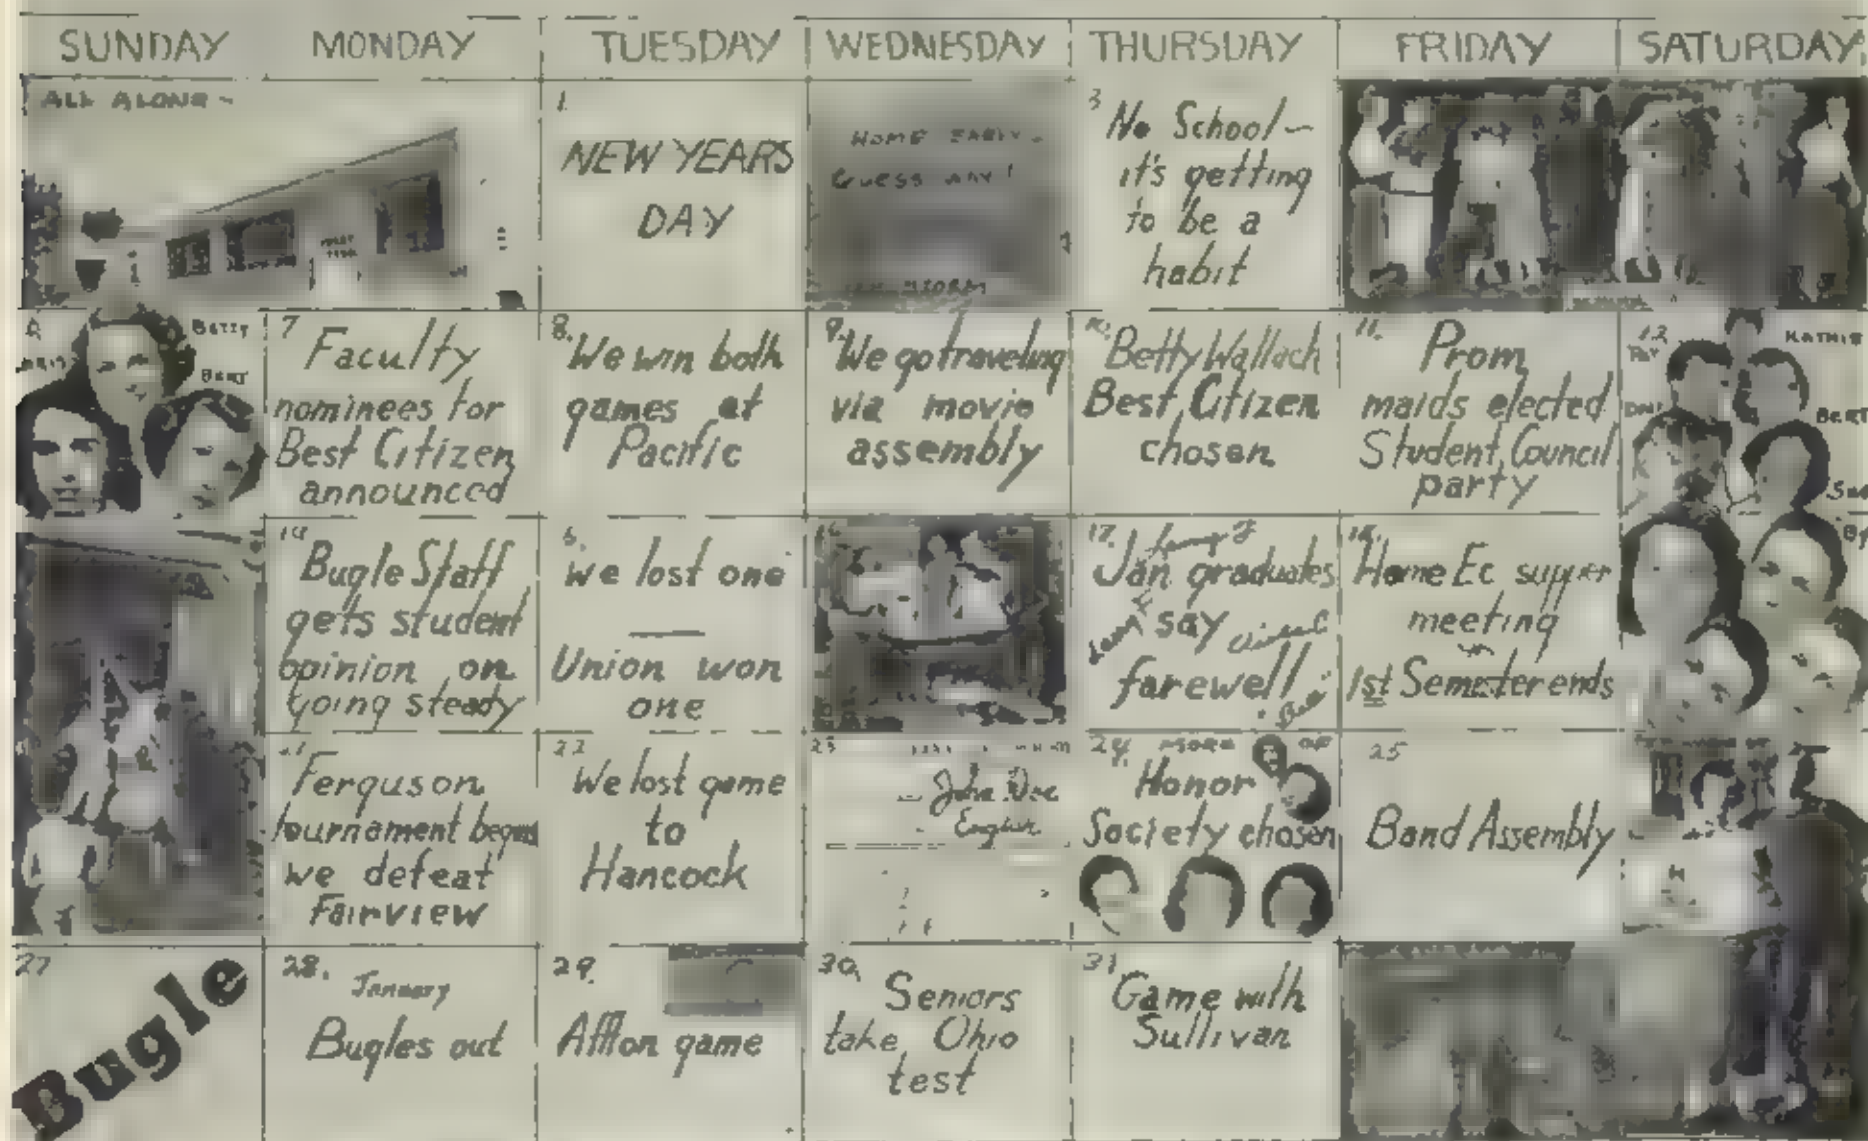 SUNDAY MONDAY TUESDAY WEDNESDAY THURSDAY FRIDAY SATURDAY
ALL ALONE -
1
NEW YEARS
DAY
HOME EARLY -
GUESS WHY!
STORM
3
No School -
it's getting
to be a
habit
BETTY
BERT
7
Faculty
nominees for
Best Citizen
announced
8.
We win both
games at
Pacific
9.
We go traveling
via movie
assembly
10.
Betty Wallach
Best Citizen
chosen
11.
Prom
maids elected
Student Council
party
12
PAT
KATHIE
BERT
14
Bugle Staff
gets student
opinion on
going steady
We lost one
Union won
one
16
17.
Jan graduates
say
farewell
18.
Home Ec supper
meeting
1st Semester ends
Ferguson
tournament begins
we defeat
Fairview
22
We lost game
to
Hancock
23
John Doe
English
24. MORE OF
Honor
Society chosen
25
Band Assembly
27
Bugle
28.
January
Bugles out
29.
Affton game
30.
Seniors
take Ohio
test
31
Game with
Sullivan